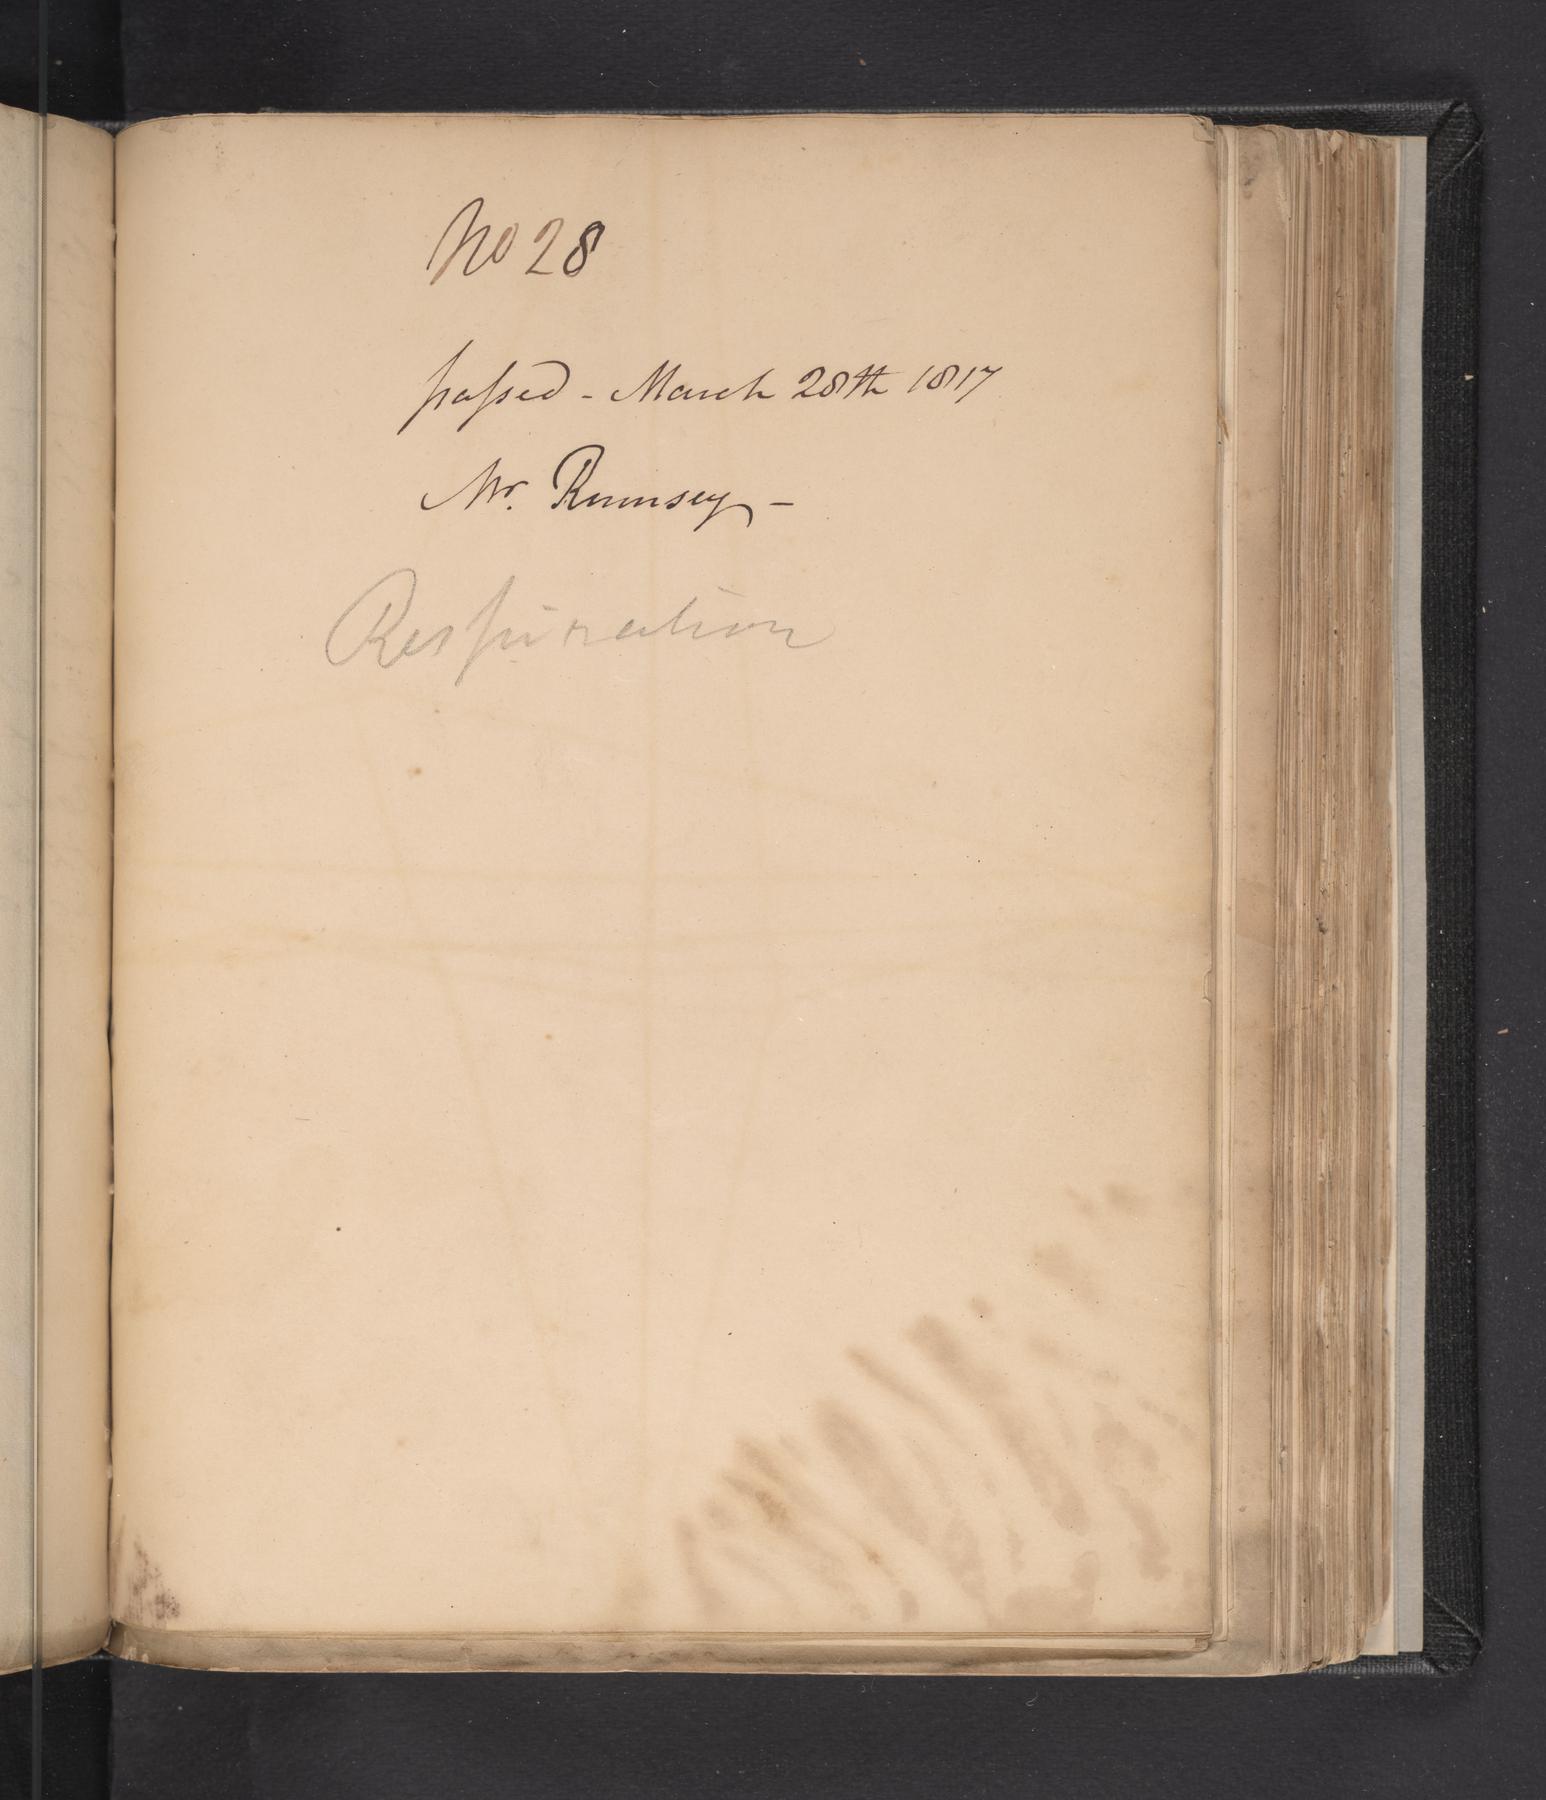 No 28
passed - March 28th 1817
Mr. Rumsey -
Respiration